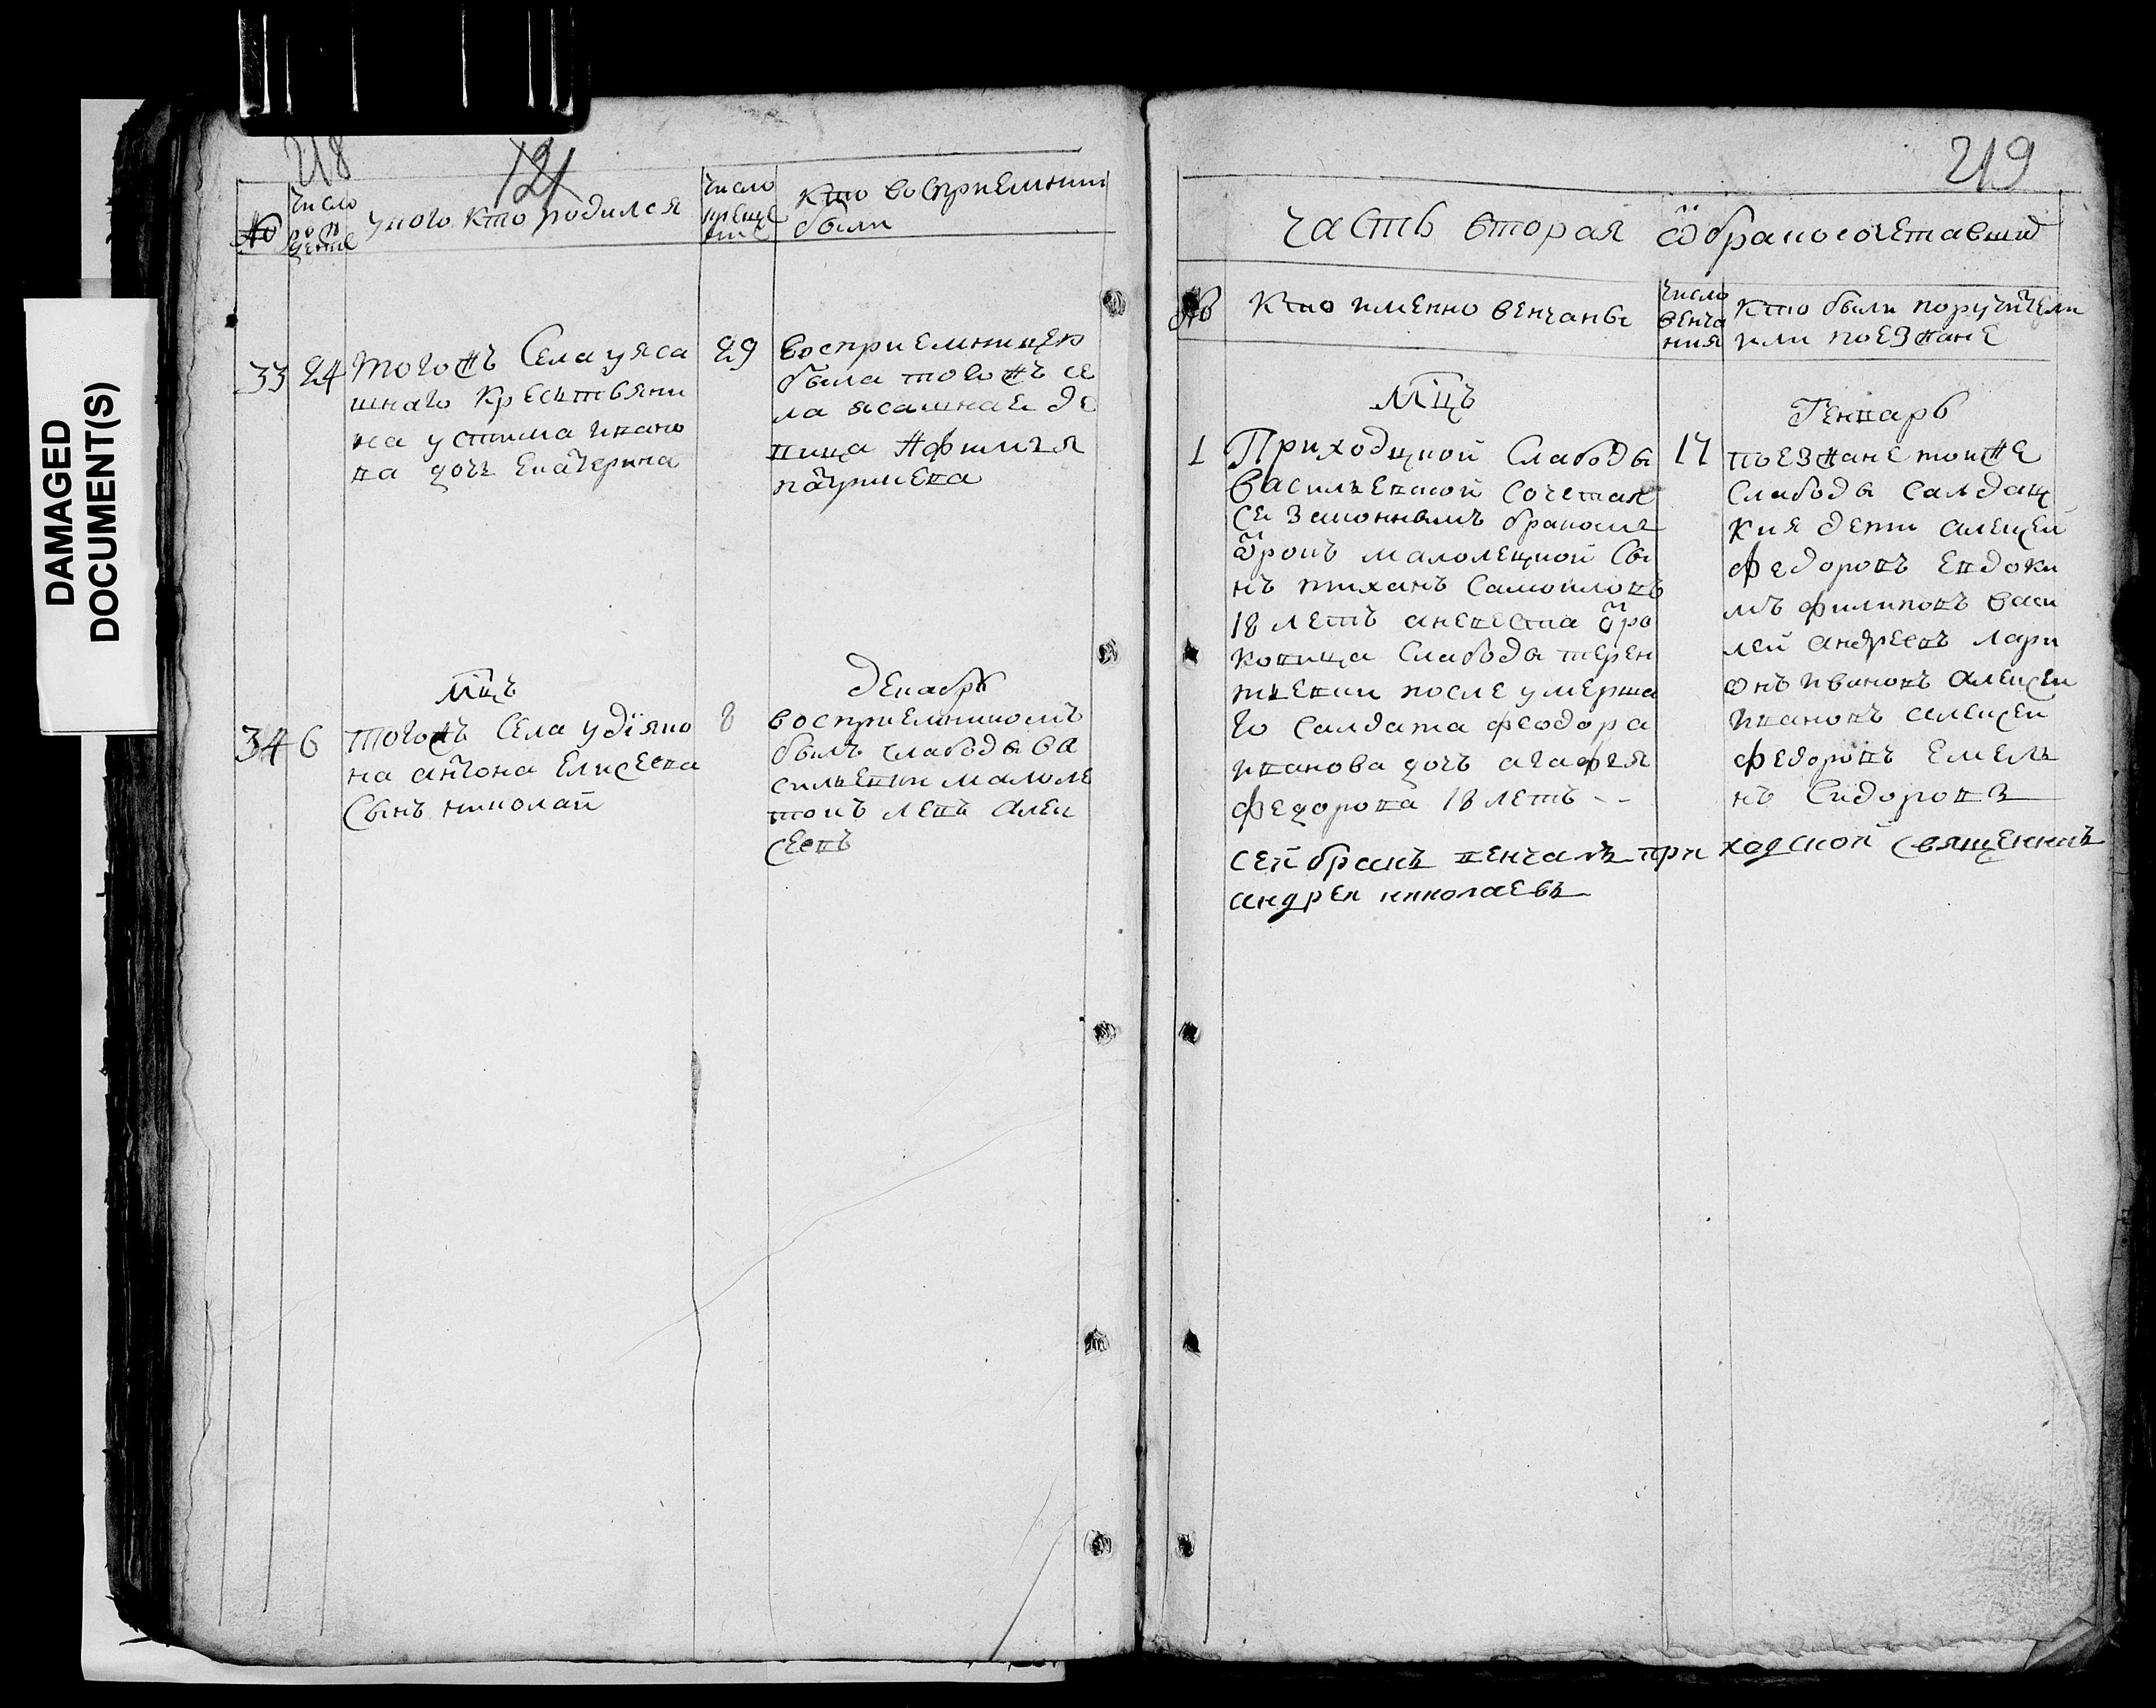 DAMAGED
DOCUMENT(S)
218
121
№
число рождение
у кого кто родился
число крещение
кто восприемники
были
33
24
тогожъ села у яса
шнаго крестьяни
на устима ивано
ва дочь екатерина
29
восприемницею
была тогожъ се
ла ясашная де
вица Афимья
мцъ
декабрь
34
6
тогожъ села у дїяко
на антона елисеева
сынъ николай
8
восприемникомъ
былъ слабоды ва
сильевки малоле
токъ левъ алек
сеевъ
219
часть вторая ѿ бракосочетавших
№
Кто именно венчаны
число
венча
ния
Кто были поручители
или поезжане
мцъ
Генварь
1
Приходцкой слабоды
васильевской сочетал
ся законнымъ бракомъ
ѿрокъ малолецкой сы
нъ тиханъ самоиловъ
18 летъ а невеста ѿро
ковица слабоды терен
тьевки после умерша
го салдата феодора
иванова дочь агафья
федорова 18 летъ - -
17
поезжане тоиже
слабоды салдац
кия дети алексеи
федоровъ евдоки
мъ филиповъ васи
леи андреевъ лари
ѡнъ ивановъ алексеи
ивановъ алексеи
федоровъ емелья
нъ сидоровъ
сей бракъ венчалъ приходской священникъ
андреи николаевъ